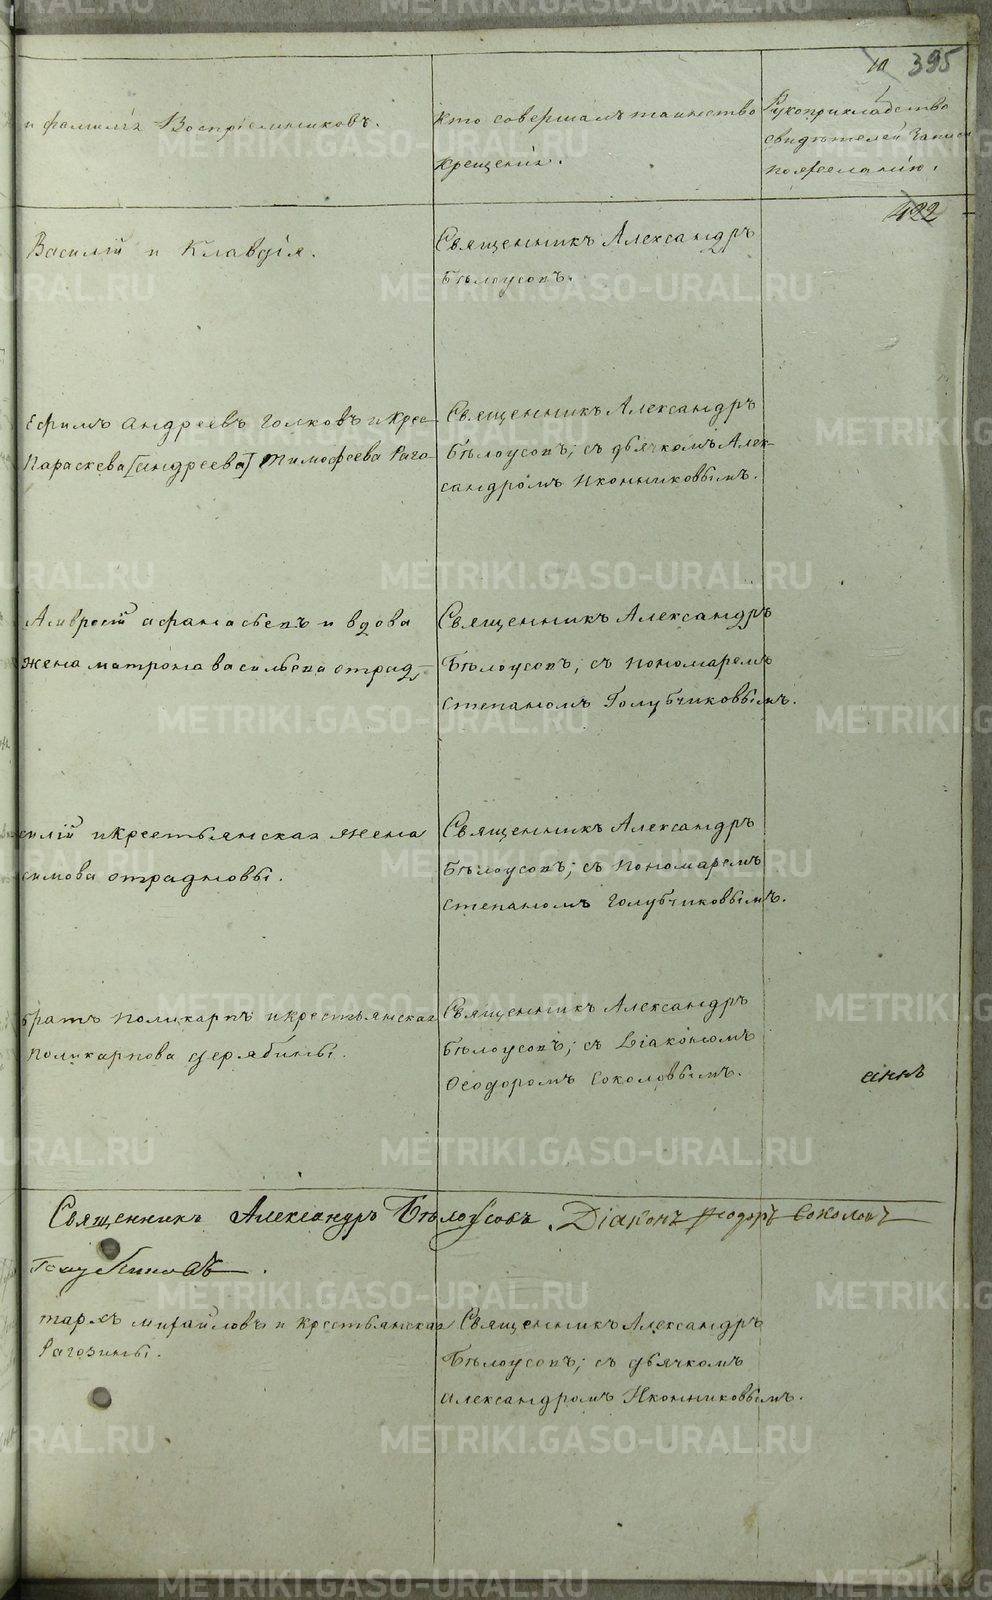 10 395
и фамилія Воспріемниковъ.
Кто совершалъ таинство
крещенія.
Рукоприкладство
свидѣтелей записи
по желанію.
422
Василій и Клавдія.
Священникъ Александръ
Бѣлоусовъ.
Ефимъ Андреевъ Голковъ и крес-
Параскева [Андреева] Тимофеева Раго-
Священникъ Александръ
Бѣлоусовъ; съ дьячкомъ Алек-
сандромъ Иконниковымъ.
Амвросій Афанасьевъ и вдова
жена Матрона Васильева Отрад
Священникъ Александръ
Бѣлоусовъ; съ пономаремъ
Степаномъ Голубчиковымъ.
силій и крестьянская жена
симова Отрадновы.
Священникъ Александръ
Бѣлоусовъ; съ пономаремъ
Степаномъ Голубчиковымъ.
братъ Поликарпъ и крестьянская
Поликарпова Дерябины.
Священникъ Александръ
Бѣлоусовъ; съ Діакономъ
Ѳеодоромъ Соколовымъ.
аннѣ
Священникъ Александръ Бѣлоусовъ. Діаконъ Ѳеодоръ Соколовъ
Голубчиковъ.
тархъ Михайловъ и крестьянская
Рагозины.
Священникъ Александръ
Бѣлоусовъ; съ дьячкомъ
Александромъ Иконниковымъ.
METRIKI.GASO-URAL.RU